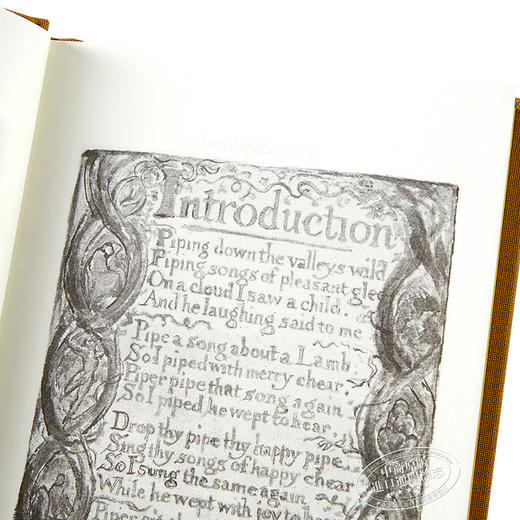 Introduction
Piping down the valleys wild
Piping songs of pleasant glee
On a cloud I saw a child.
And he laughing said to me
Pipe a song about a Lamb
So I piped with merry chear,
Piper pipe that song again
So I piped, he wept to hear
Drop thy pipe thy happy pipe
Sing thy songs of happy chear
So I sung the same again
While he wept with joy to hear
Piper sit